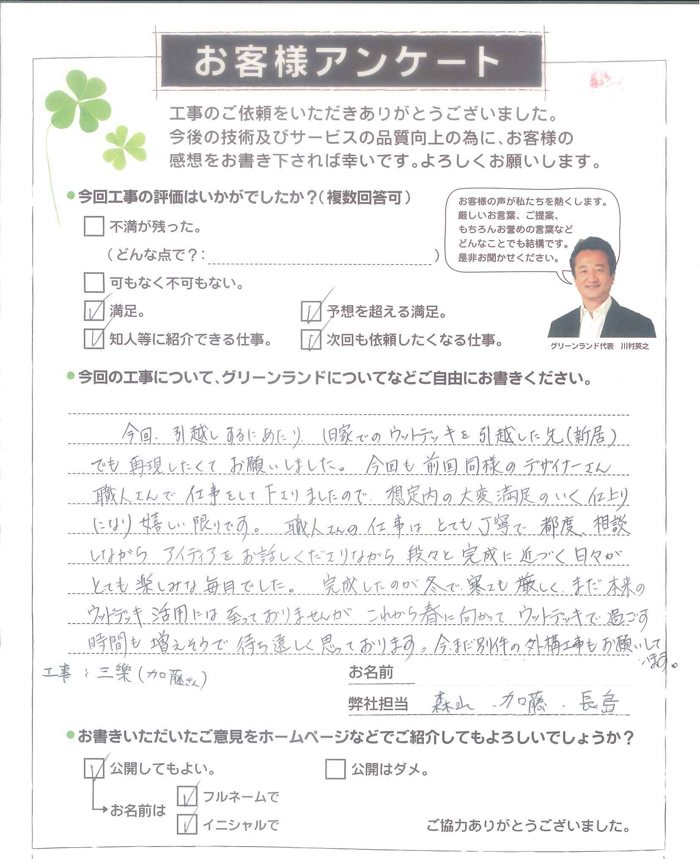 お客様アンケート
工事のご依頼をいただきありがとうございました。
今後の技術及びサービスの品質向上の為に、お客様の
感想をお書き下されば幸いです。よろしくお願いします。
●今回工事の評価はいかがでしたか？（複数回答可）
不満が残った。
（どんな点で？：　）
可もなく不可もない。
満足。
予想を超える満足。
知人等に紹介できる仕事。
次回も依頼したくなる仕事。
お客様の声が私たちを熱くします。
厳しいお言葉、ご提案、
もちろんお誉めの言葉など
どんなことでも結構です。
是非お聞かせください。
グリーンランド代表　川村英之
●今回の工事について、グリーンランドについてなどご自由にお書きください。
今回、引越しするにあたり、旧家でのウットデッキを引越した先（新居）
でも再現したくてお願いしました。今回も前回同様のデザイナーさん
職人さんで仕事をして下さりましたので、想定内の大変満足のいく仕上り
になり嬉しい限りです。職人さんの仕事はとても丁寧で都度、相談
しながらアイディアをお話しくださりながら段々と完成に近づく日々が
とても楽しみな毎日でした。完成したのが冬で寒さも厳しく、まだ本来の
ウットデッキ活用には至っておりませんがこれから春に向かってウットデッキで過ごす
時間も増えそうで待ち遠しく思っております。今まだ別件の外構工事もお願いして
います。
工事：三樂（加藤さん）
お名前
弊社担当　森山、加藤、長島
●お書きいただいたご意見をホームページなどでご紹介してもよろしいでしょうか？
公開してもよい。
公開はダメ。
お名前は
フルネームで
イニシャルで
ご協力ありがとうございました。